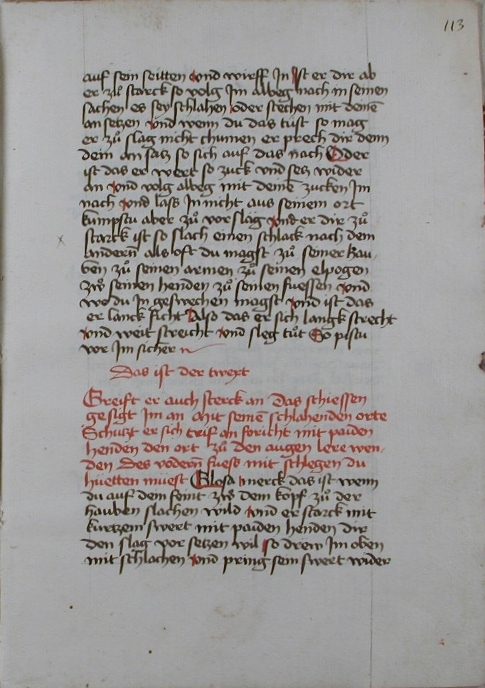 113
auf sein seitten vnd wirff In Ist er dir ab
er zů starck so volg Im albeg nach in seinen
sachen es sey schlahen oder stechen mit deinē
an setzen vnd wenn du das tůst so mag
er zů slag nicht chumen er prech dir denn
dein an satz so sich auf das nach Oder
ist das er wert so zuck vnd setz wider
an vnd volg albeg mit deinē zucken Im
nach vnd lass In nicht aus seinem ort
kumpstu aber zů vor slag vnd er dir zů
starck ist so slach einen schlack nach dem
anderñ als oft du magst zů seiner hau
ben zů seinen armen zů seinen elpogen
zẘ seinen henden zů seinen fuessen vnd
wo du In geswechen magst vnd ist das
er lanck ficht Also das er sich langk strecht
vnd weit streicht vnd sleg tůt So pistu
vor Im sicher
Das ist der text
Greift er auch sterck an Das schiessen
gesigt Im an Mit seinē schlahenden orte
Schutzt er sich triff an foricht mit paiden
henden den ort zů den augen lere wen
den Des vodern fuess mit schlegen du
huetten muest Glosa merck das ist wenn
du auf dem feint zẘ dem kopf zů der
hauben slachen wild vnd er starck mit
kurtzem swert mit paiden henden dir
den slag vor setzen wil so drew Im oben
mit schlachen vnd pring sein swert wider